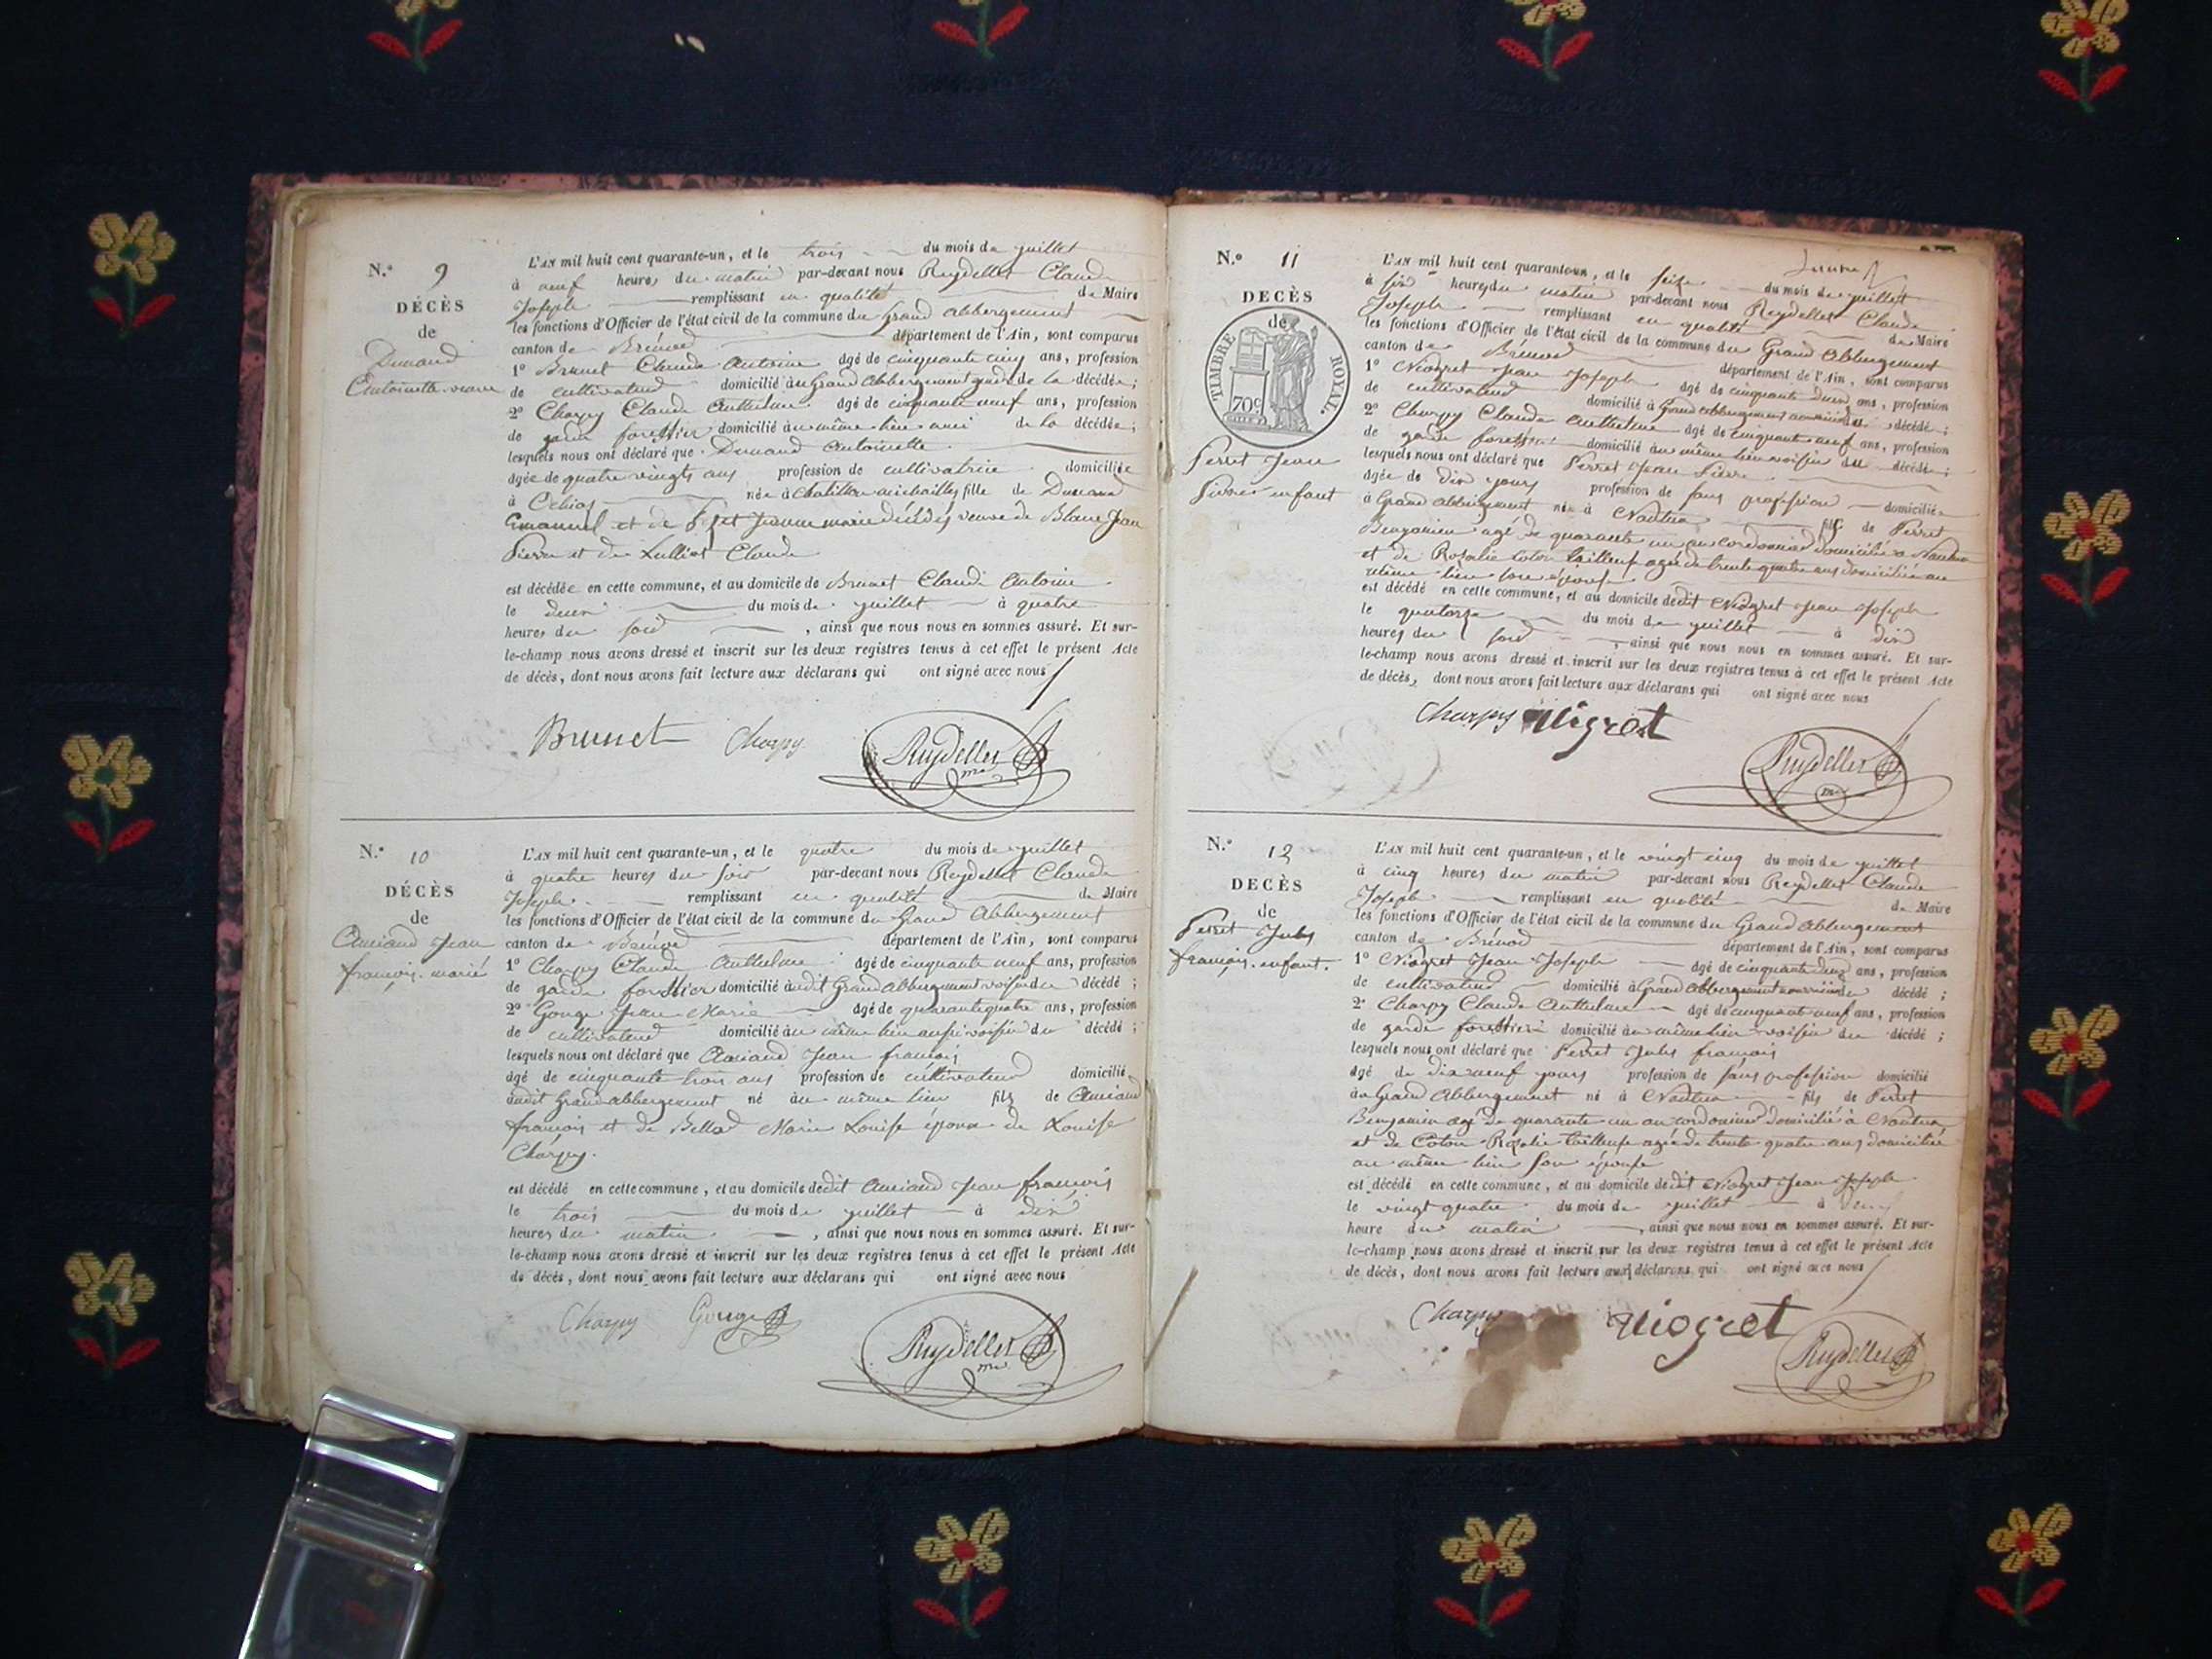 N.° 9
DÉCÈS
de
Dunand
Antoinette veuve
L'AN mil huit cent quarante-un, et le trois du mois de juillet
à neuf heures du matin par-devant nous Reydellet Claude
Joseph remplissant en qualité de Maire
les fonctions d'Officier de l'état civil de la commune du Grand abbergement
canton de Brénod département de l'Ain, sont comparus
1° Brunet Claude Antoine âgé de cinquante cinq ans, profession
de cultivateur domicilié au Grand Abbergement de la décédée;
2° Charpy Claude Anthelme âgé de cinquante neuf ans, profession
de garde forestier domicilié au même lieu ami de la décédée;
lesquels nous ont déclaré que Dunand Antoinette
âgée de quatre vingts ans profession de cultivatrice domiciliée
à née à Chatillon fille de Dunand
Emanuel et de Jeanne marie décédés veuve de Blanc Jean
Pierre et de Claude
est décédée en cette commune, et au domicile de Brunet Claude Antoine
le deux du mois de juillet à quatre
heures du soir, ainsi que nous nous en sommes assuré. Et sur-
le-champ nous avons dressé et inscrit sur les deux registres tenus à cet effet le présent Acte
de décès, dont nous avons fait lecture aux déclarans qui ont signé avec nous
Brunet Charpy Reydellet
N.° 10
DÉCÈS
de
Jean
françois marié
L'AN mil huit cent quarante-un, et le quatre du mois de juillet
à quatre heures du soir par-devant nous Reydellet Claude
Joseph remplissant en qualité de Maire
les fonctions d'Officier de l'état civil de la commune du Grand Abbergement
canton de Brénod département de l'Ain, sont comparus
1° Charpy Claude Anthelme âgé de cinquante neuf ans, profession
de garde forestier domicilié audit Grand abbergement voisin du décédé;
2° Gouge Jean Marie âgé de quarante quatre ans, profession
de cultivateur domicilié au même lieu aussi voisin du décédé;
lesquels nous ont déclaré que Jean françois
âgé de cinquante trois ans profession de cultivateur domicilié
audit Grand abbergement né au même lieu fils de
françois et de Marie Louise époux de Louise
Charpy.
est décédé en cette commune, et au domicile dedit Jean françois
le trois du mois de juillet à dix
heures du matin, ainsi que nous nous en sommes assuré. Et sur-
le-champ nous avons dressé et inscrit sur les deux registres tenus à cet effet le présent Acte
de décès, dont nous avons fait lecture aux déclarans qui ont signé avec nous
Charpy Gouge Reydellet
N.° 11
DECÈS
de
TIMBRE ROYAL.
70c
Perret Jean
Pierre enfant
L'AN mil huit cent quarante-un, et le seize du mois de juillet
à six heures du matin par-devant nous Reydellet Claude
Joseph remplissant en qualité de Maire
les fonctions d'Officier de l'état civil de la commune du Grand Abbergement
canton de Brénod département de l'Ain, sont comparus
1° Niogret Jean Joseph âgé de cinquante deux ans, profession
de cultivateur domicilié à Grand abbergement décédé;
2° Charpy Claude Anthelme âgé de cinquante neuf ans, profession
de garde forestier domicilié au même lieu voisin du décédé;
lesquels nous ont déclaré que Perret Jean Pierre
âgée de dix jours profession de sans profession domicilié
à Grand abbergement né à Nantua fils de Perret
Benjamin agé de quarante un ans cordonnier domicilié à Nantua
et de Rosalie Coton tailleuse agée de trente quatre ans domiciliée au
même lieu son épouse
est décédé en cette commune, et au domicile dedit Niogret Jean Joseph
le quatorze du mois de juillet à dix
heures du soir, ainsi que nous nous en sommes assuré. Et sur-
le-champ nous avons dressé et inscrit sur les deux registres tenus à cet effet le présent Acte
de décès, dont nous avons fait lecture aux déclarans qui ont signé avec nous
Charpy Niogret
Reydellet
N.° 12
DECÈS
de
Perret Jules
françois enfant.
L'AN mil huit cent quarante-un, et le vingt cinq du mois de juillet
à cinq heures du matin par-devant nous Reydellet Claude
Joseph remplissant en qualité de Maire
les fonctions d'Officier de l'état civil de la commune du Grand Abbergement
canton de Brénod département de l'Ain, sont comparus
1° Niogret Jean Joseph âgé de cinquante deux ans, profession
de cultivateur domicilié à Grand Abbergement décédé;
2° Charpy Claude Anthelme âgé de cinquante neuf ans, profession
de garde forestier domicilié au même lieu voisin du décédé;
lesquels nous ont déclaré que Perret Jules françois
âgé de dix neuf jours profession de sans profession domicilié
au Grand Abbergement né à Nantua fils de Perret
Benjamin agé de quarante un an cordonnier domicilié à Nantua
et de Coton Rosalie tailleuse agée de trente quatre ans domiciliée
au même lieu son épouse
est décédé en cette commune, et au domicile dedit Niogret Jean Joseph
le vingt quatre du mois de juillet à
heure du matin, ainsi que nous nous en sommes assuré. Et sur-
le-champ nous avons dressé et inscrit sur les deux registres tenus à cet effet le présent Acte
de décès, dont nous avons fait lecture aux déclarans qui ont signé avec nous
Charpy Niogret Reydellet